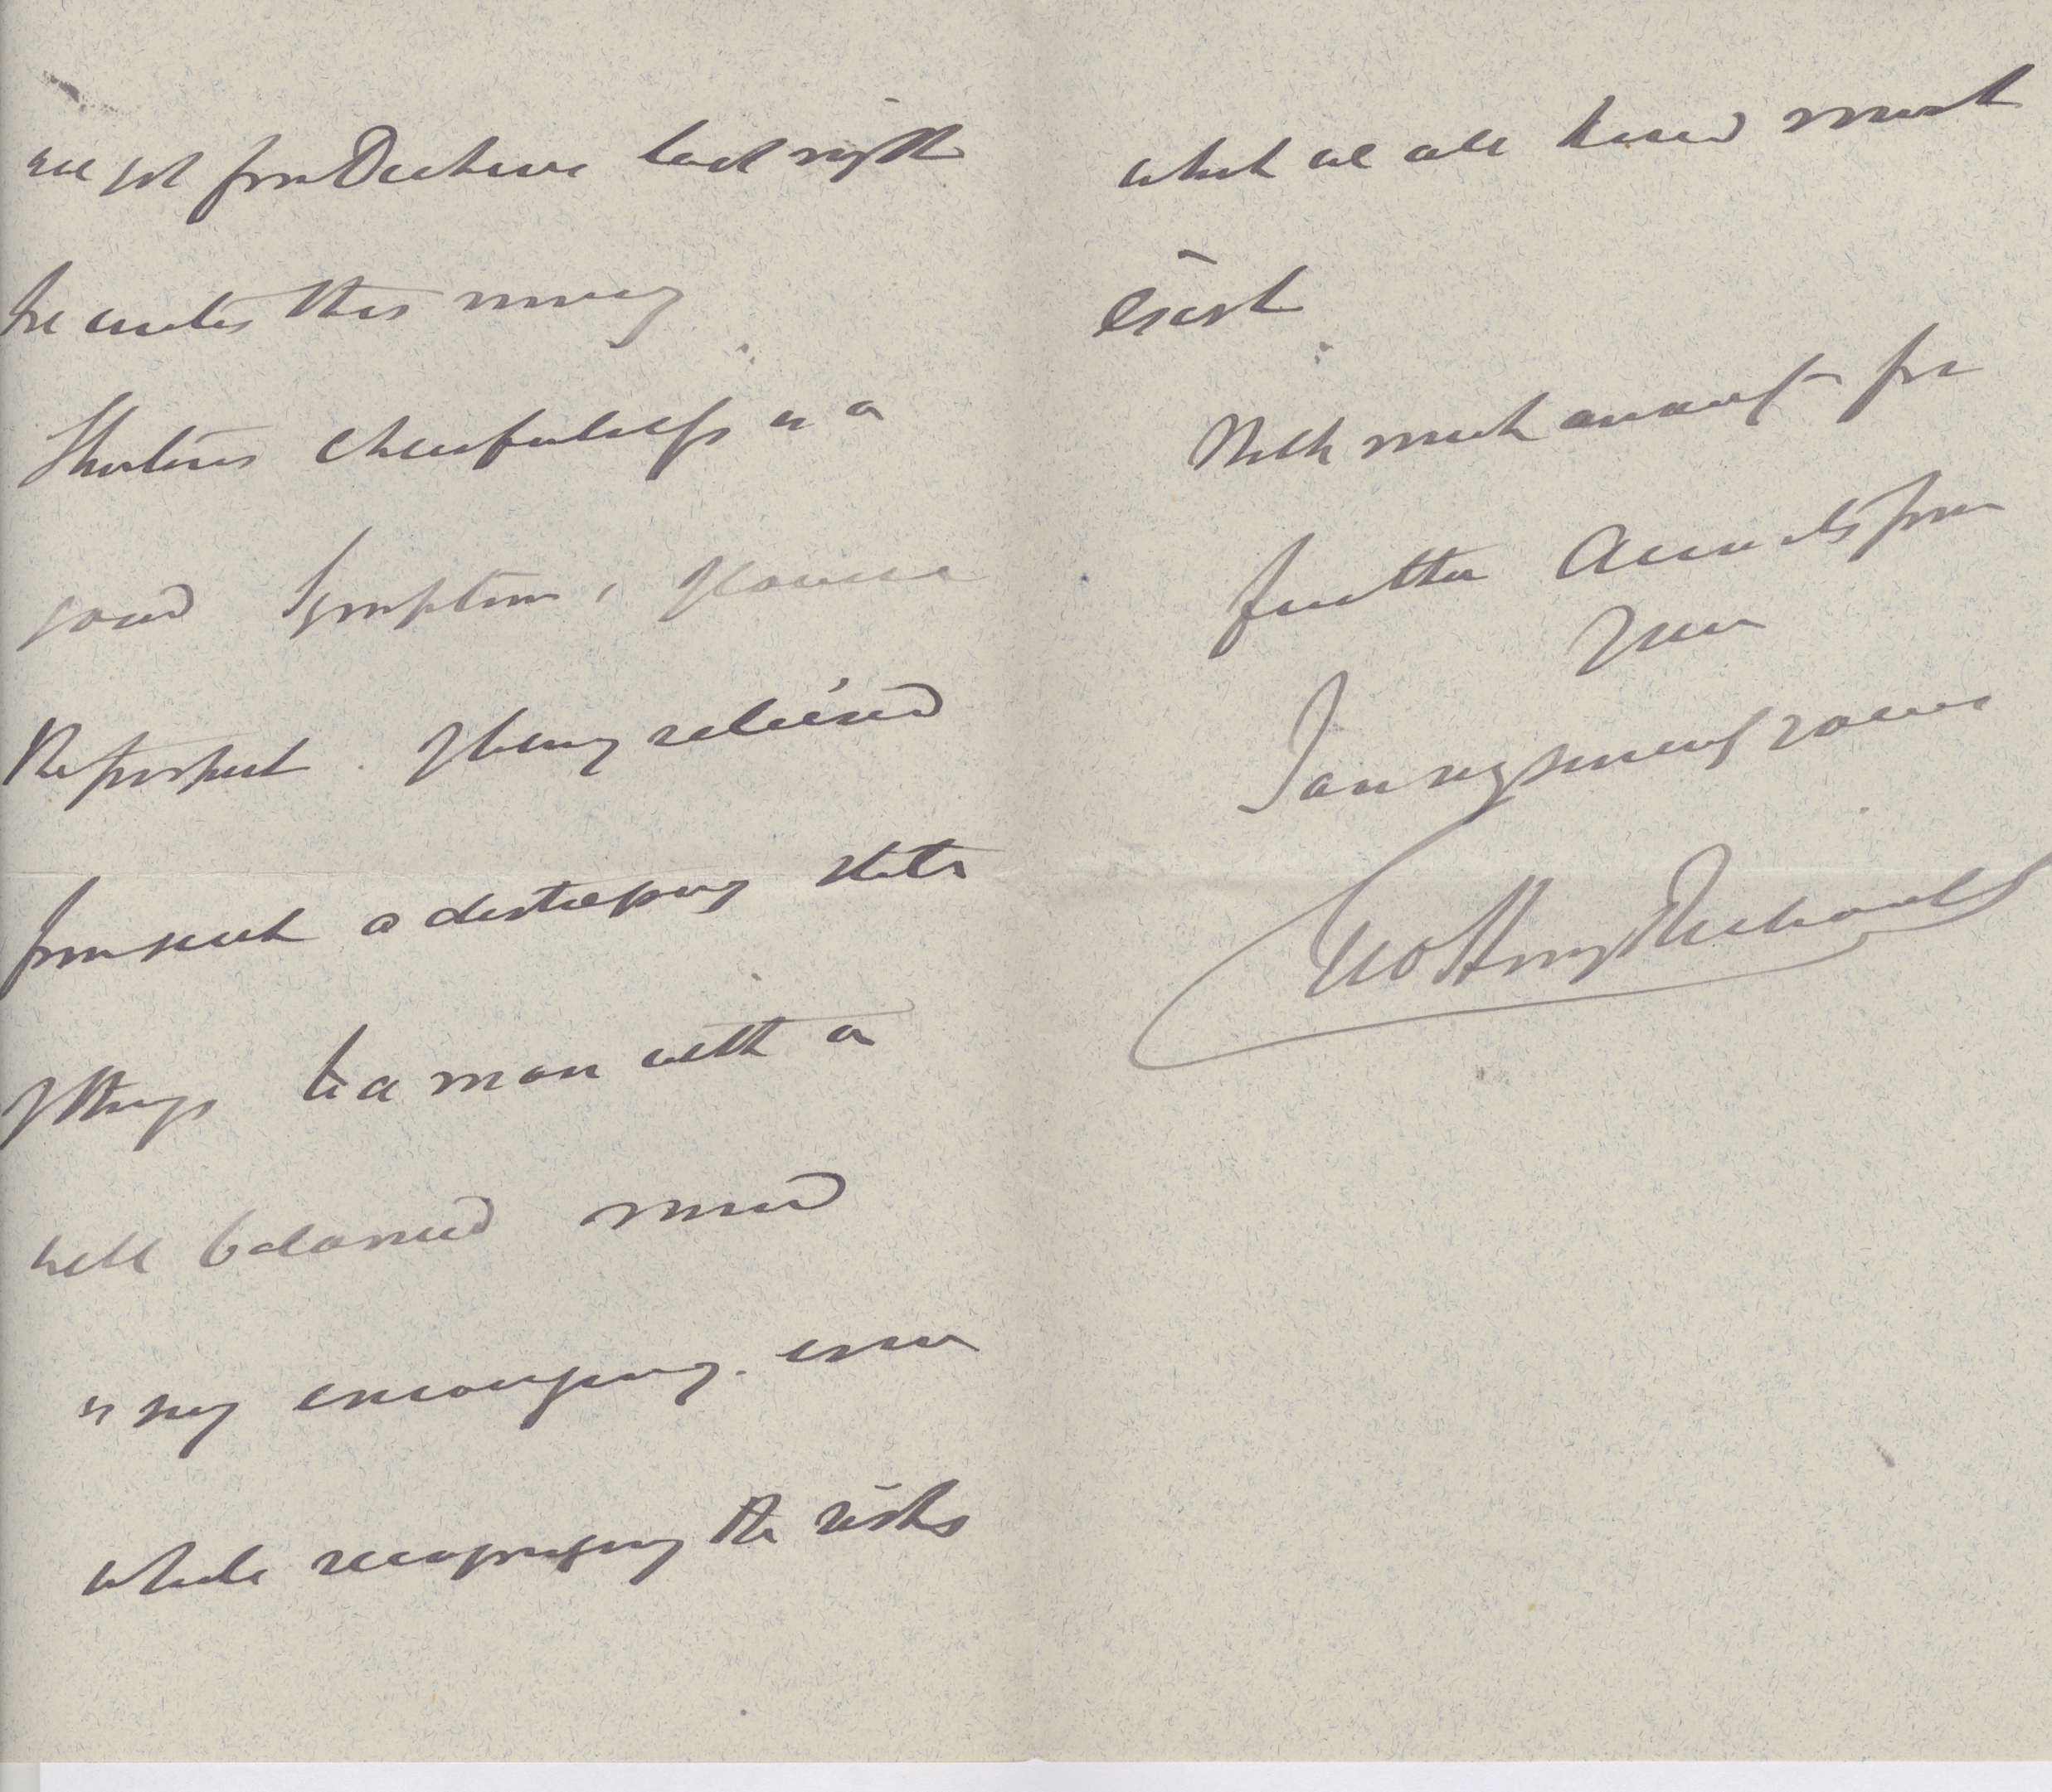 we got from Dickens last night
he writes this morning
Thortons cheerfulness is a
good Symptom, of course
the prospect of being relieved
from such a distressing state
of things to a man with a
well balanced mind
is very encouraging. even
while recognizing the risks
which we all know must
exist
With much anxiety for
further Accounts from
you
I am very sincerely yours
Geo Henry Richards